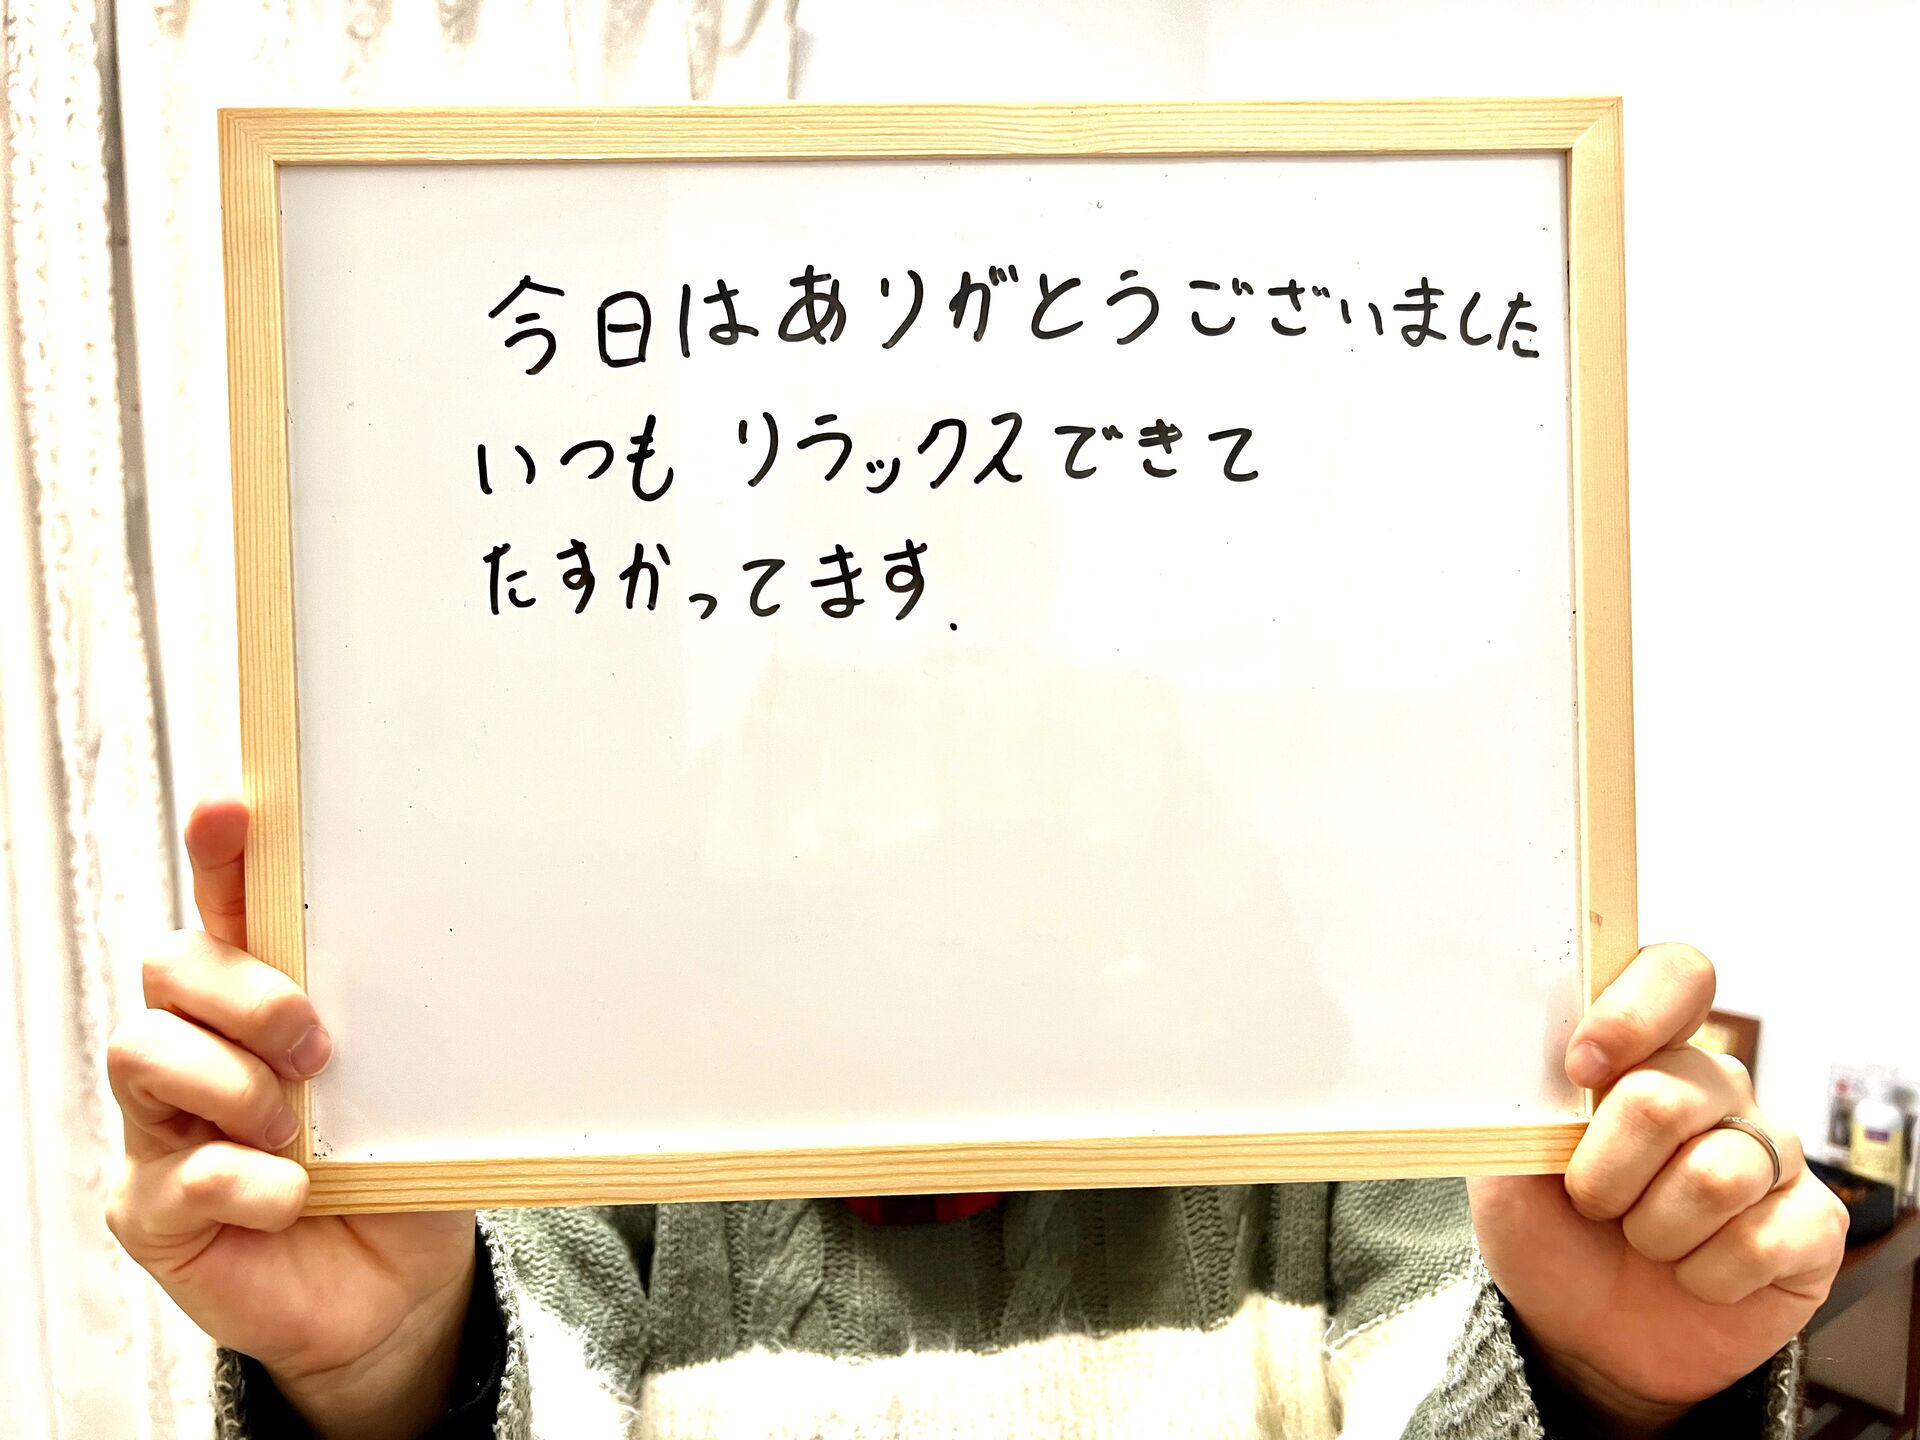 今日はありがとうございました
いつも リラックスできて
たすかってます.